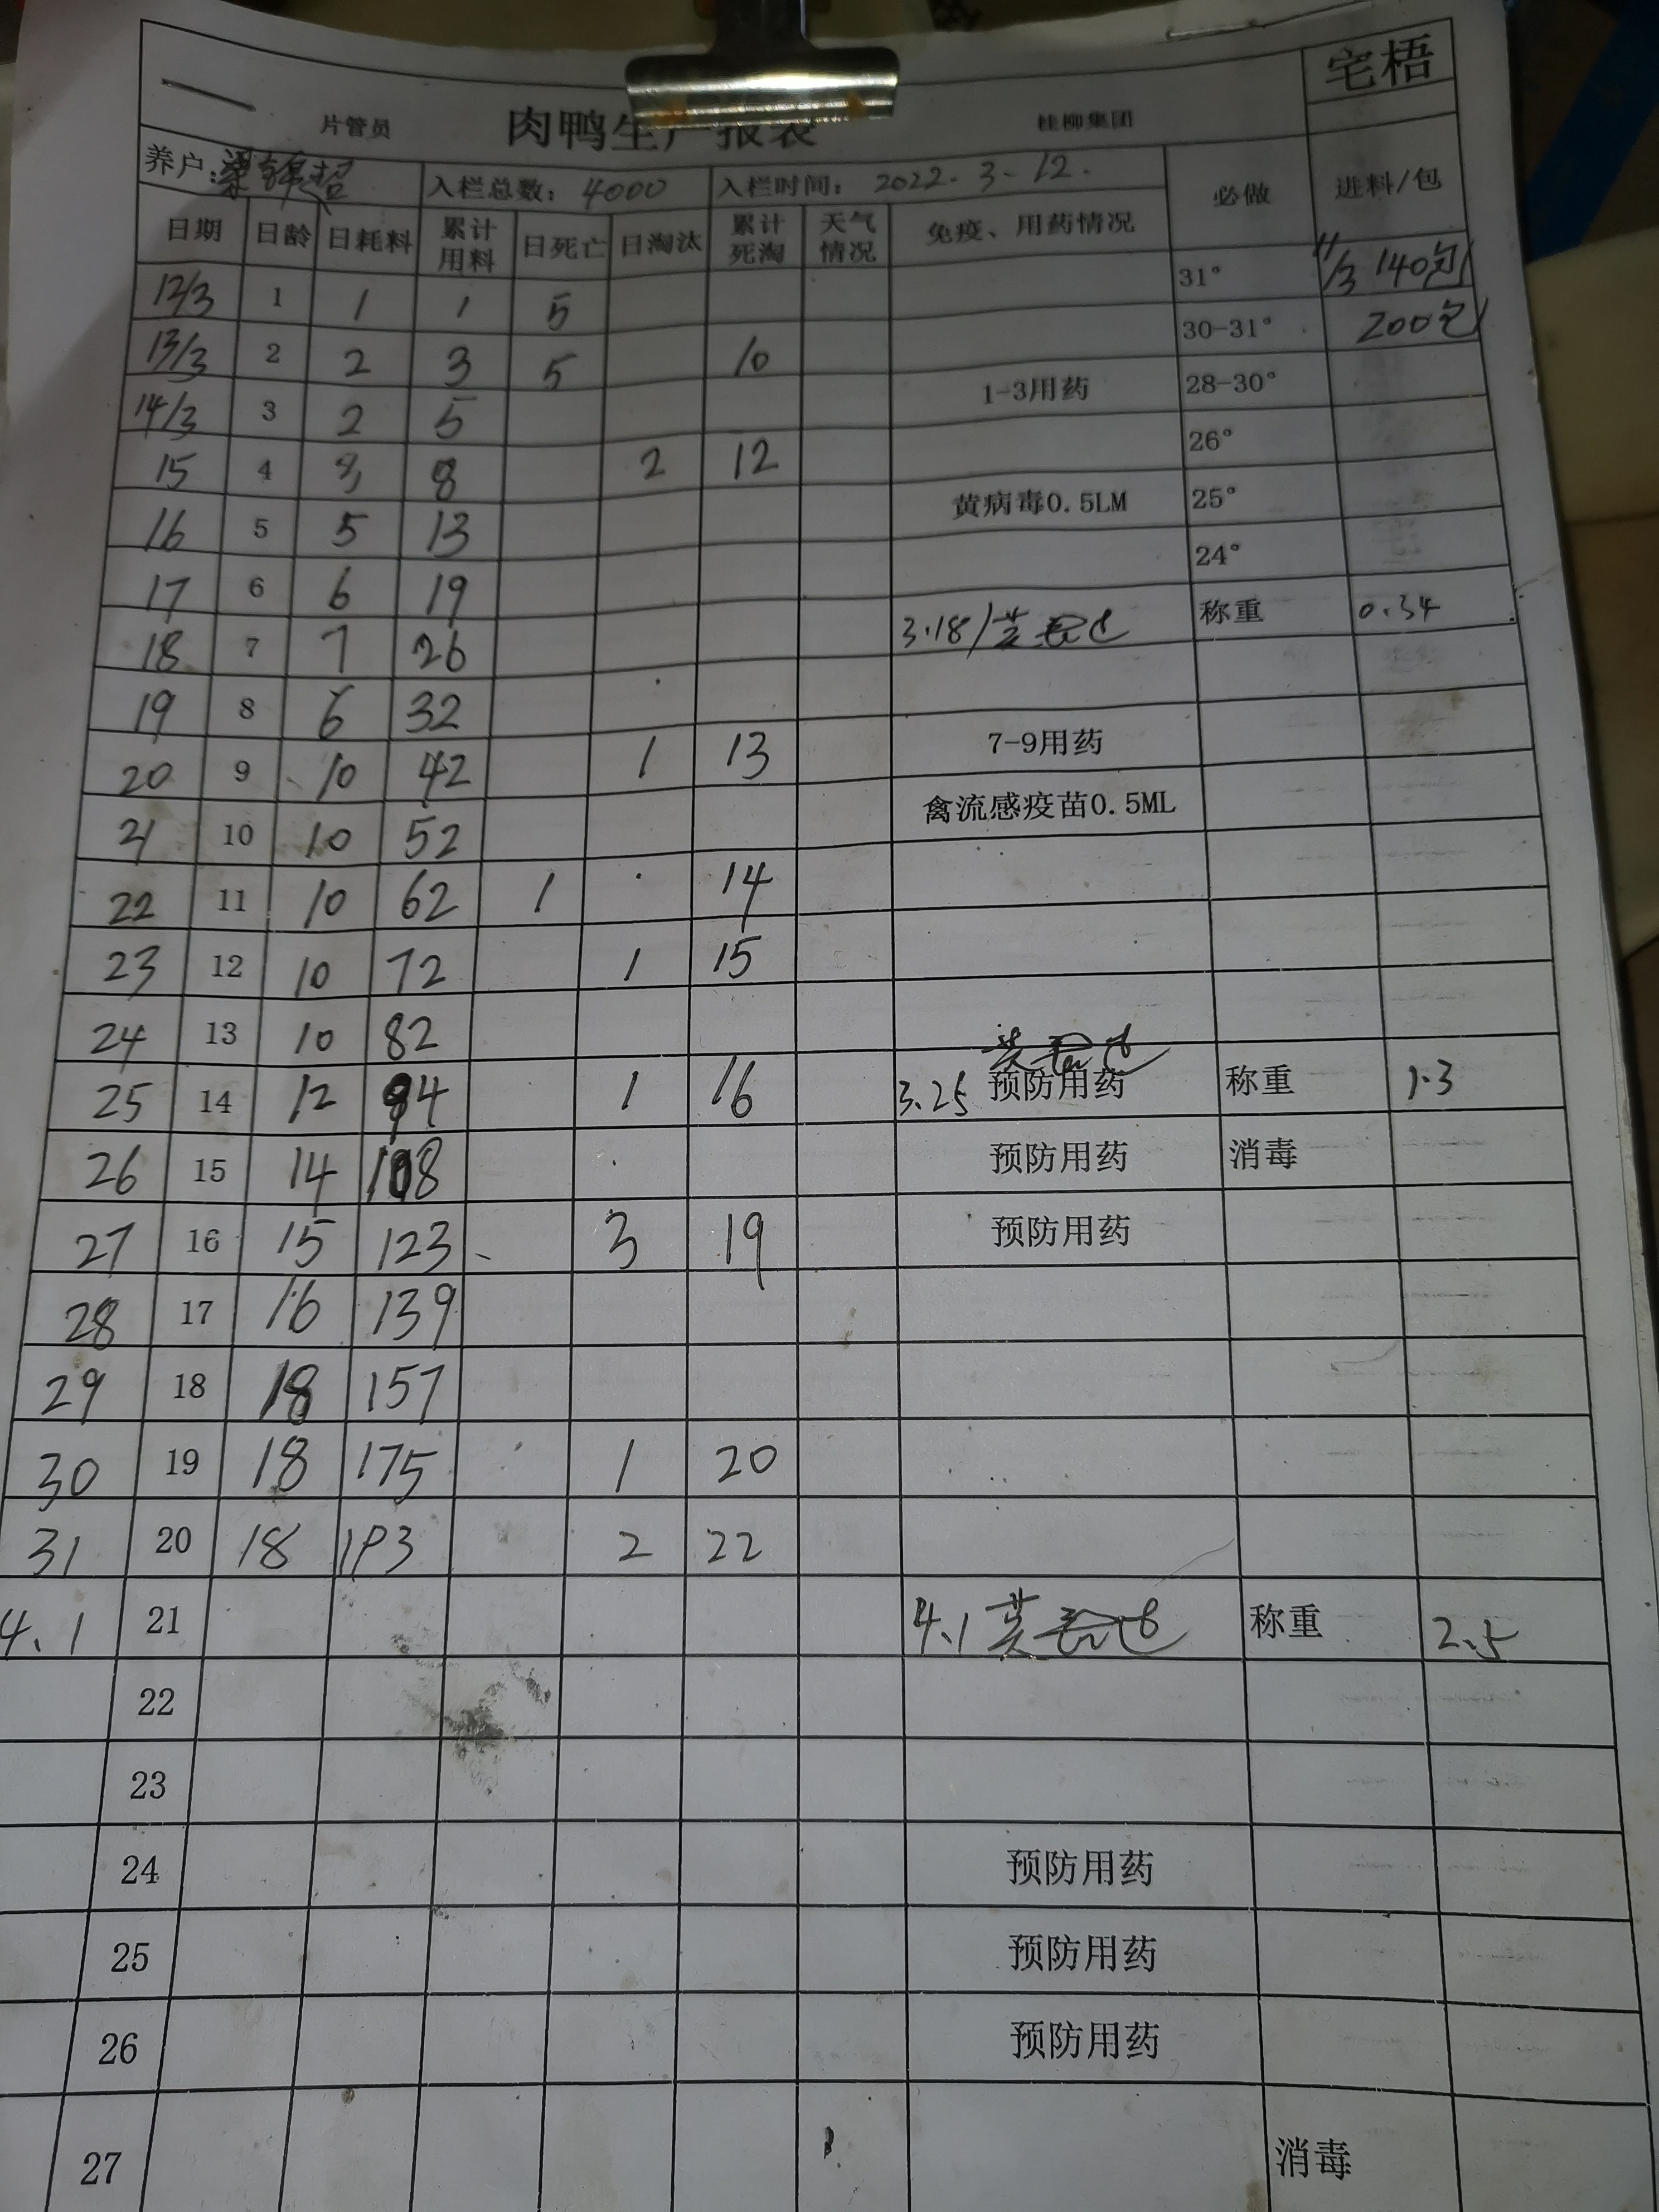 宅梧
片管员 肉鸭生产报表 桂柳集团
养户: 入栏总数: 4000 入栏时间: 2022.3-12. 必做 进料/包
日期 日龄 日耗料 累计用料 日死亡 日淘汰 累计死淘 天气情况 免疫、用药情况
12/3 1 1 1 5 31° 11/3 140包
13/3 2 2 3 5 10 30-31° 200包
14/3 3 2 5 1-3用药 28-30°
15 4 3 8 2 12 26°
16 5 5 13 黄病毒0.5LM 25°
17 6 6 19 24°
18 7 7 26 3.18/ 称重 0.34
19 8 6 32
20 9 10 42 1 13 7-9用药
21 10 10 52 禽流感疫苗0.5ML
22 11 10 62 1 14
23 12 10 72 1 15
24 13 10 82
25 14 12 94 1 16 3.25 预防用药 称重 1.3
26 15 14 108 预防用药 消毒
27 16 15 123 3 19 预防用药
28 17 16 139
29 18 18 157
30 19 18 175 1 20
31 20 18 193 2 22
4.1 21 4.1 称重 2.5
22
23
24 预防用药
25 预防用药
26 预防用药
27 消毒